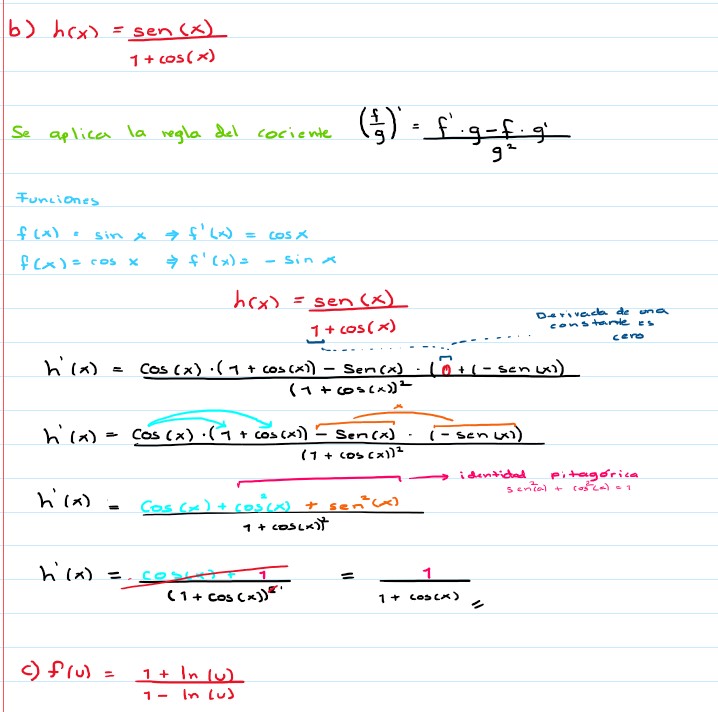 b) h(x) = sen(x) / 1 + cos(x)
Se aplica la regla del cociente (f/g)' = f'·g - f·g' / g²
Funciones
f(x) = sin x ⇒ f'(x) = cos x
f(x) = cos x ⇒ f'(x) = - sin x
h(x) = sen(x) / 1 + cos(x)
Derivada de una
constante es
cero
h'(x) = cos(x)·(1 + cos(x)) - sen(x)·(0 + (-sen(x)) / (1 + cos(x))²
x
h'(x) = cos(x)·(1 + cos(x)) - sen(x)·(-sen(x)) / (1 + cos(x))²
identidad pitagórica
sen²(a) + cos²(a) = 1
h'(x) = cos(x) + cos²(x) + sen²(x) / 1 + cos(x))²
h'(x) = cos(x) + 1 / (1 + cos(x))² = 1 / 1 + cos(x)
c) f(u) = 1 + ln(u) / 1 - ln(u)